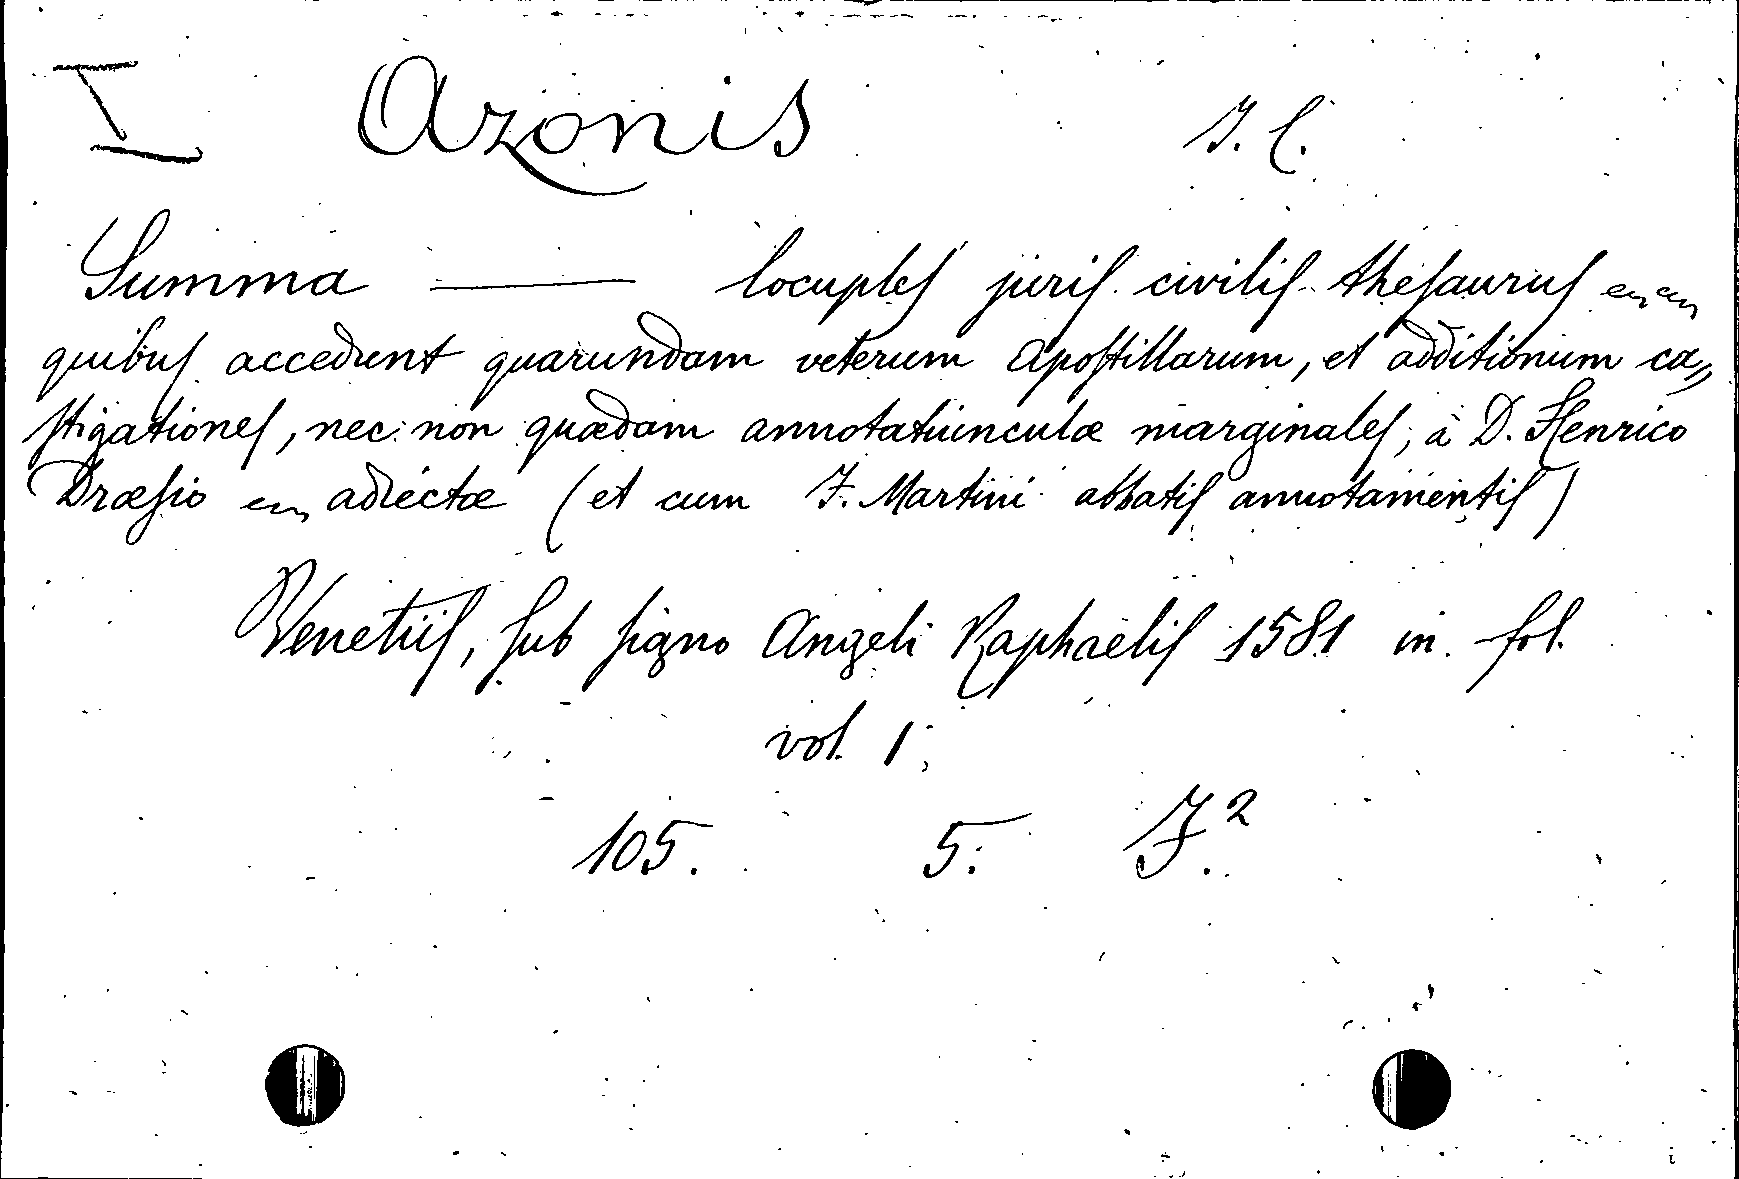 I Azonis J. C.
Summa —— locuples juris civilis thesaurus
quibus accedunt quarundam veterum Apostillarum, et additionum ca„
stigationes, nec non quædam annotatiunculæ marginales, à D. Henrico
Dræsio adiectæ (et cum J. Martini abbatis annotamentis)
Venetiis, sub signo Angeli Raphaëlis 1581 in fol.
vol. 1
105. 5. J.²